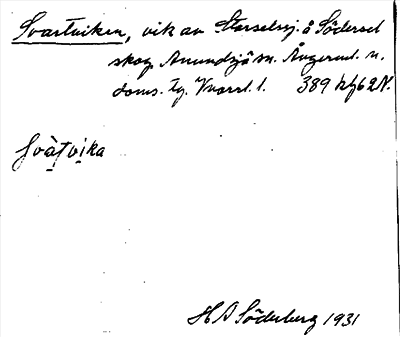 Svartviken, vik av Storselssj. å Södersel
skog Anundsjö sn. Ångerml. n.
doms. Tg. Vnorrl. l. 389 hf 62 N.
Svàtvika
H A Söderberg 1931